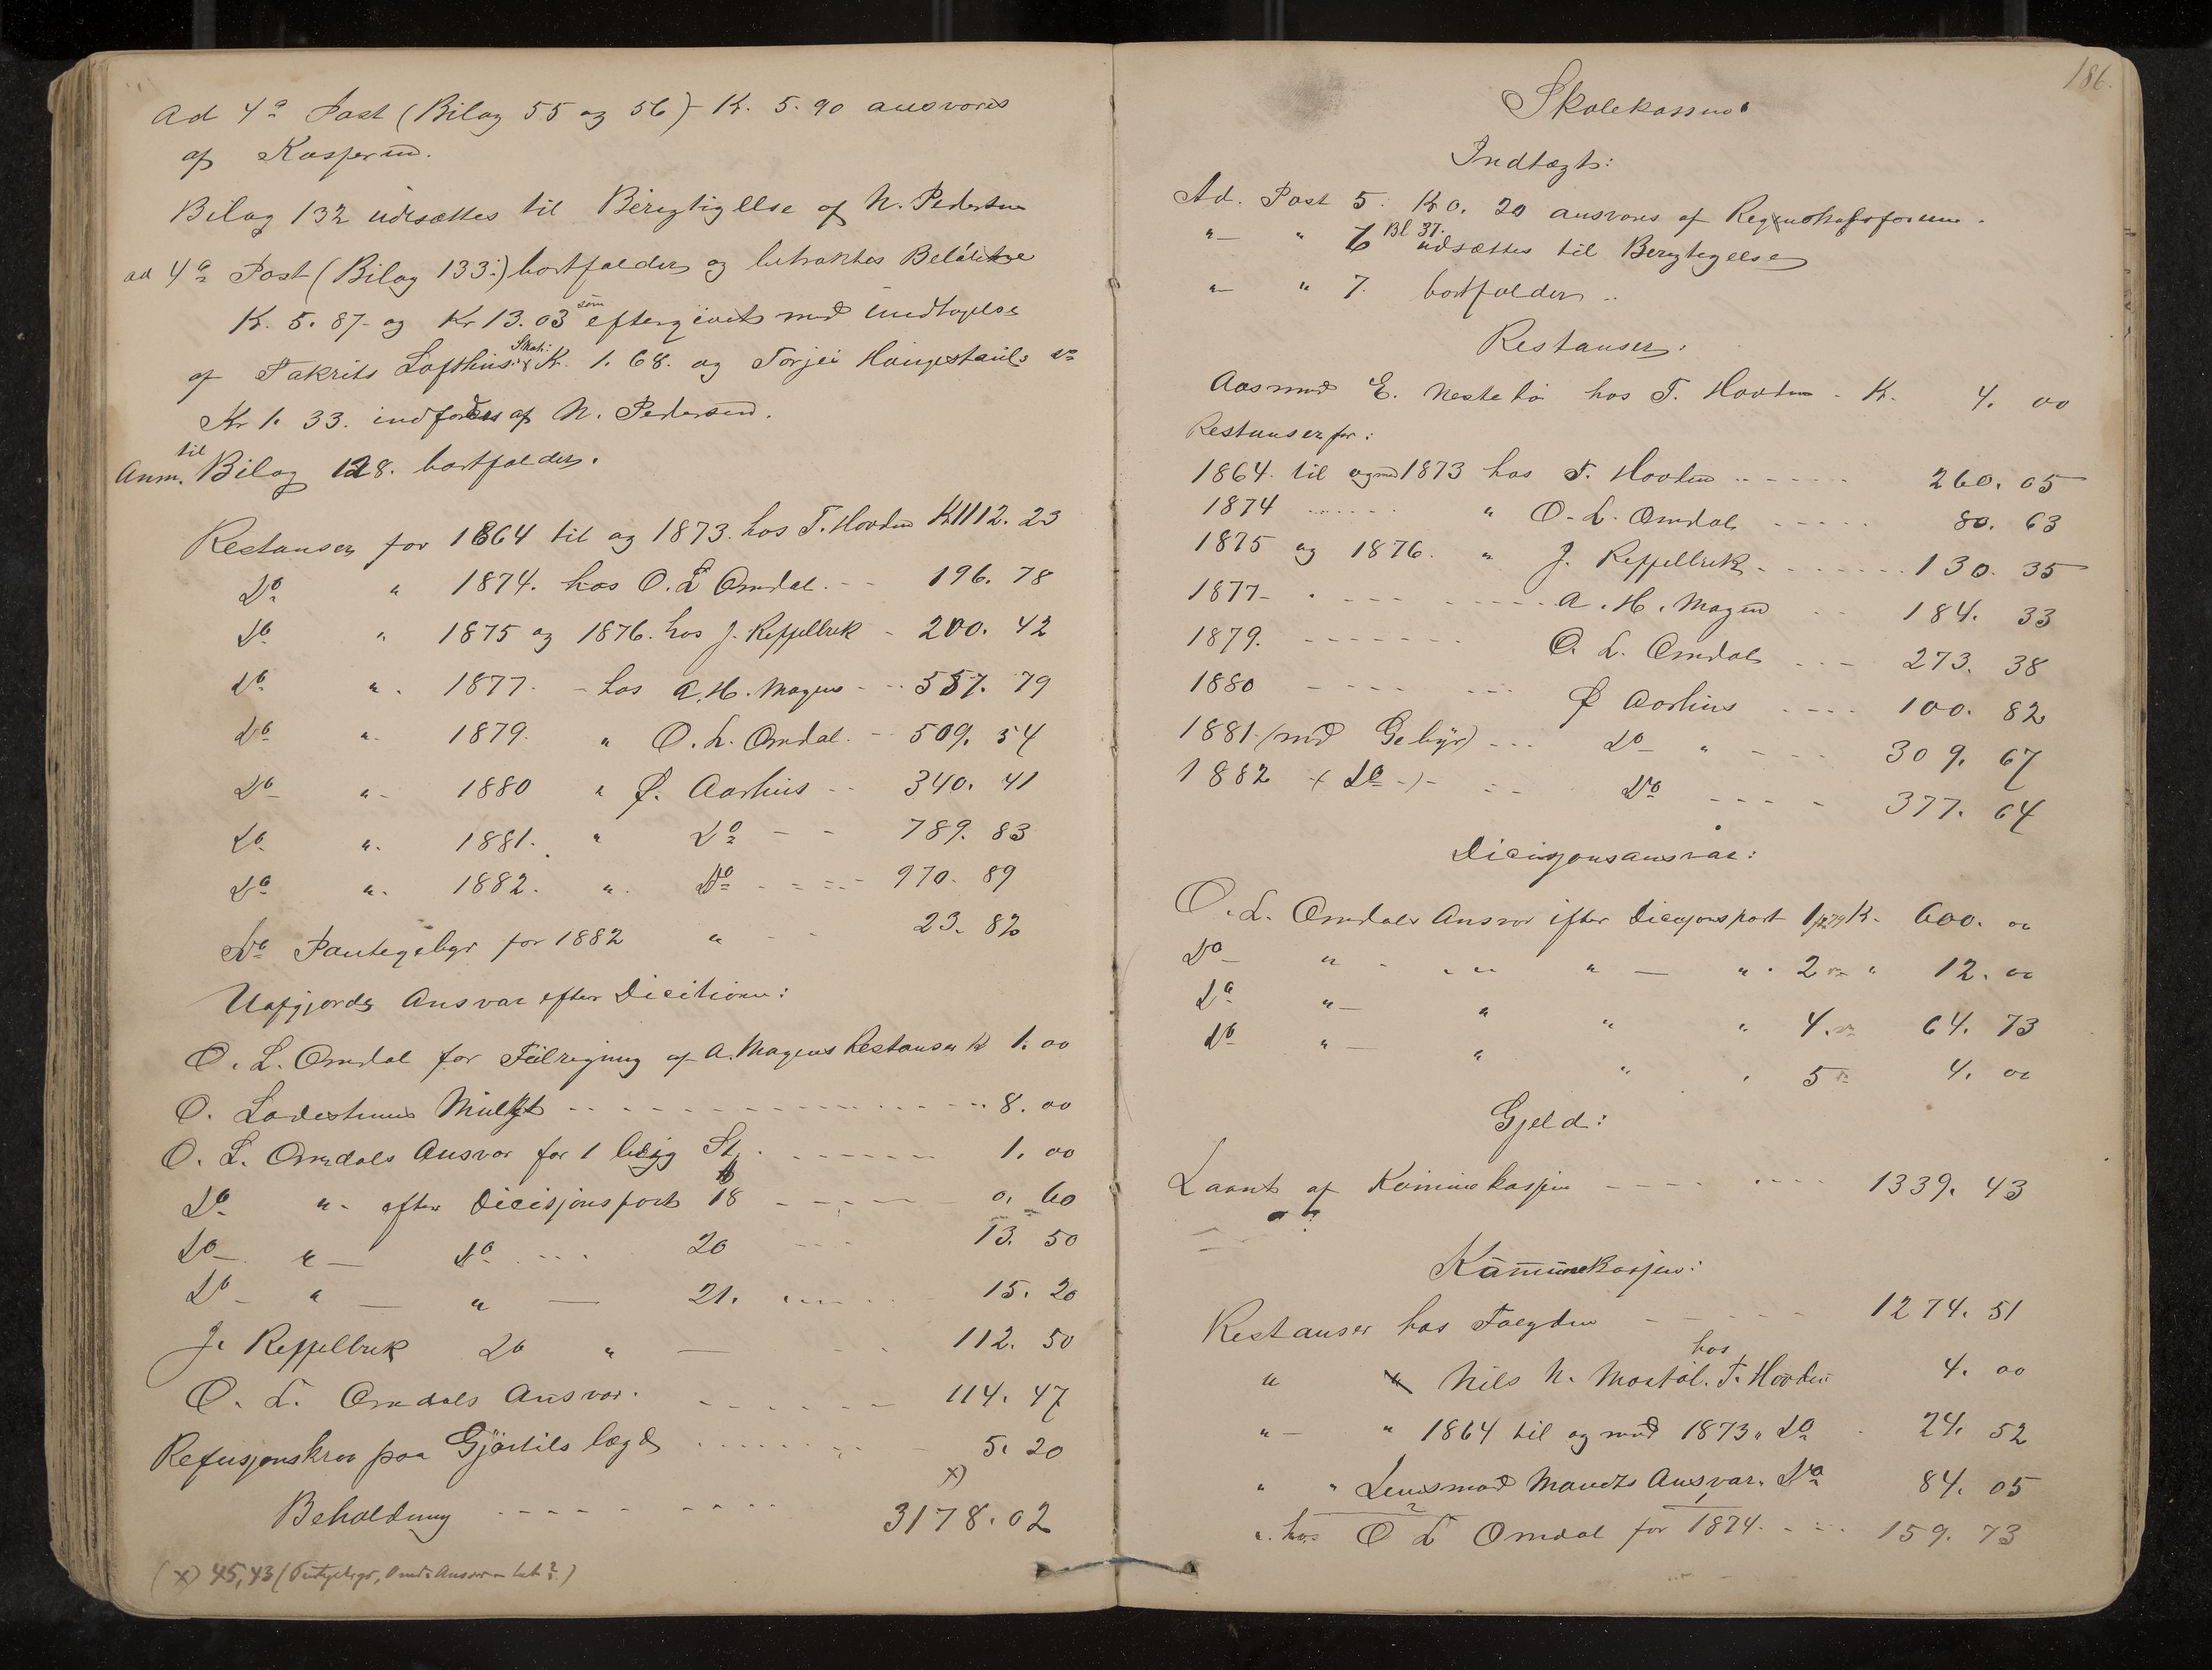 Ad 4a Post (Bilag 55 og 56) K. 5.90 ansvares
af Kasperen.
Bilag 132 udsættes til Berigtigelse af N. Pedersen
ad 4a Post (Bilag 133) bortfalder og betraktes Beløbene
K. 5.87 og Kr 13.03 som eftergivet med Undtagelse
af Takrits Lofthus Skat: K. 1.68. og Torjei Haugestauls Do
Kr 1.33. indfordres af N. Pedersen.
Anm. til Bilag 128. bortfalder.
Restanser for 1864 til og 1873. hos T. Hovden K 1112.23
Do " 1874. hos O. L Omdal. - - 196.78
Do " 1875 og 1876. hos J. Reppelbrek - 200.42
Do " 1877. - hos A. H. Magens - - 557.79
Do " 1879. " O. L. Omdal. - 509.54
Do " 1880 " Ø. Aarhus - - 340.41
Do " 1881. " Do - - 789.83
Do " 1882. " Do - - - - 970.89
Do Pantegebyr for 1882 " - - 23.82
Uafgjorde Ansvar efter Dicitioner:
O. L. Omdal for Fælregning af A. Magens Restanser K 1.00
O. Ladestuens Mulkt - - - - 8.00
O. L. Omdals Ansvar for 1 belyg St. - - - - 1.00
Do " efter Dicisjonspost 18 - - - - 0.60
Do " Do - - - 20 - - - 13.50
Do " — " — 21. - - - - 15.20
J. Reppelbrek Do " — - - 112.50
O. L. Omdals Ansvar. - - - - 114.47
Refusjonskrav paa Gjøstils lægd - - - - 5.20
x)
Beholdning - - - - 3178.02
(x) 45,43 (Pantgebyr, Omd. Ansvar
186.
Skolekassen.
Indtægt:
Ad. Post 5. K 0.20 ansvares af Regnskabsføreren.
" — " 6 Bl 37. udsættes til Berigtigelse
" — " 7. bortfalder ..
Restanser:
Aasmund E. Nestebø hos T. Hovden - K. 4.00
Restanser for:
1864. til og med 1873 hos T. Hovden - - - - 260.05
1874 - - - - " O. L. Omdal - - - - 80.63
1875 og 1876. " J. Reppelbrek - - - - 130.35
1877 - - - - A. H. Magen - - 184.33
1879. - - - - O. L. Omdal - - - 273.38
1880 - - - - Ø Aarhus - - - - 100.82
1881 (med Gebyr) - - - Do " - - - 309.67
1882 (Do) - - - Do - - - - 377.64
Dicisjonsansvar:
O. L. Omdals Ansvar efter Dicisjonspost 1 1879 K. 600.00
Do " - - - " — " 2 " 12.00
Do " — " " " 4. 64.73
Do " — " " " 5 4.00
Gjeld:
Laant af Kommunekassen - - - - 1339.43
Kommunekassen:
Restanser hos Fogden - - - - 1274.51
" " Nils N. Mostøl. hos T. Hovden 4.00
" — " 1864 til og med 1873 " Do - 24.52
" " Lensmand Mandts Ansvar. Do 84.05
" hos O L Omdal for 1874. - - - 159.73